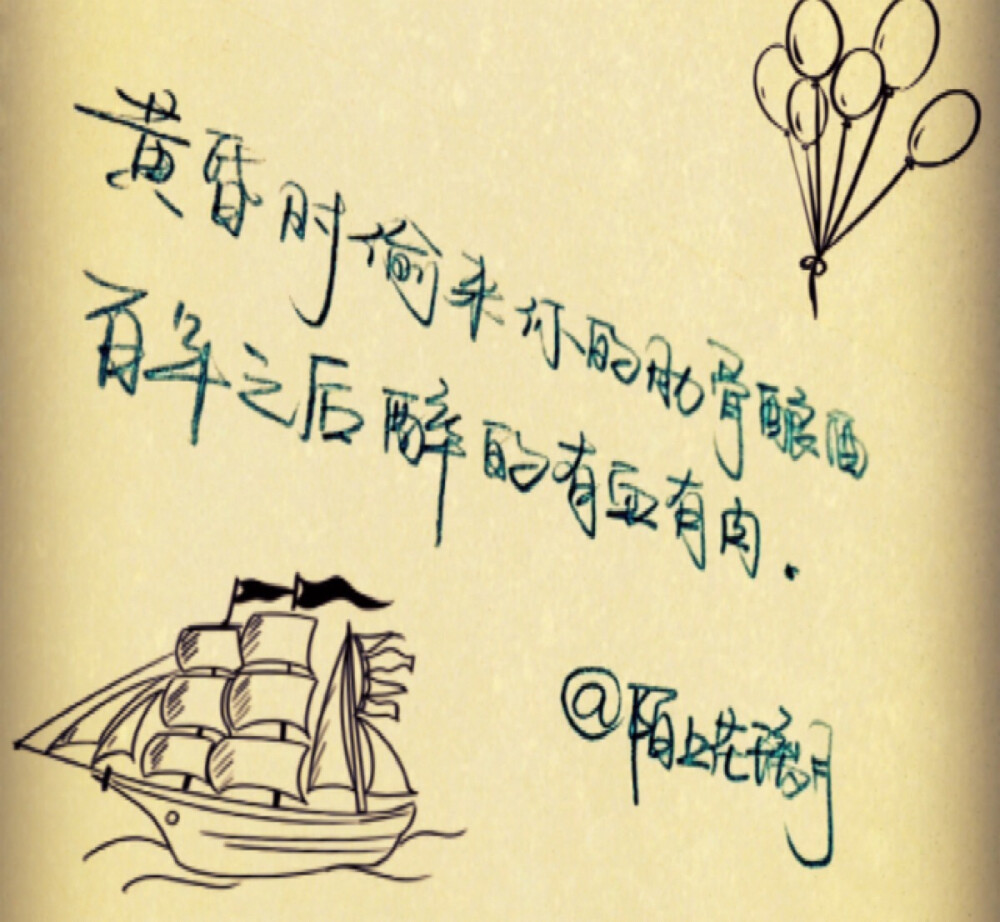 黄昏时偷来你的肋骨酿酒
百年之后醉的有血有肉.
@陌上花